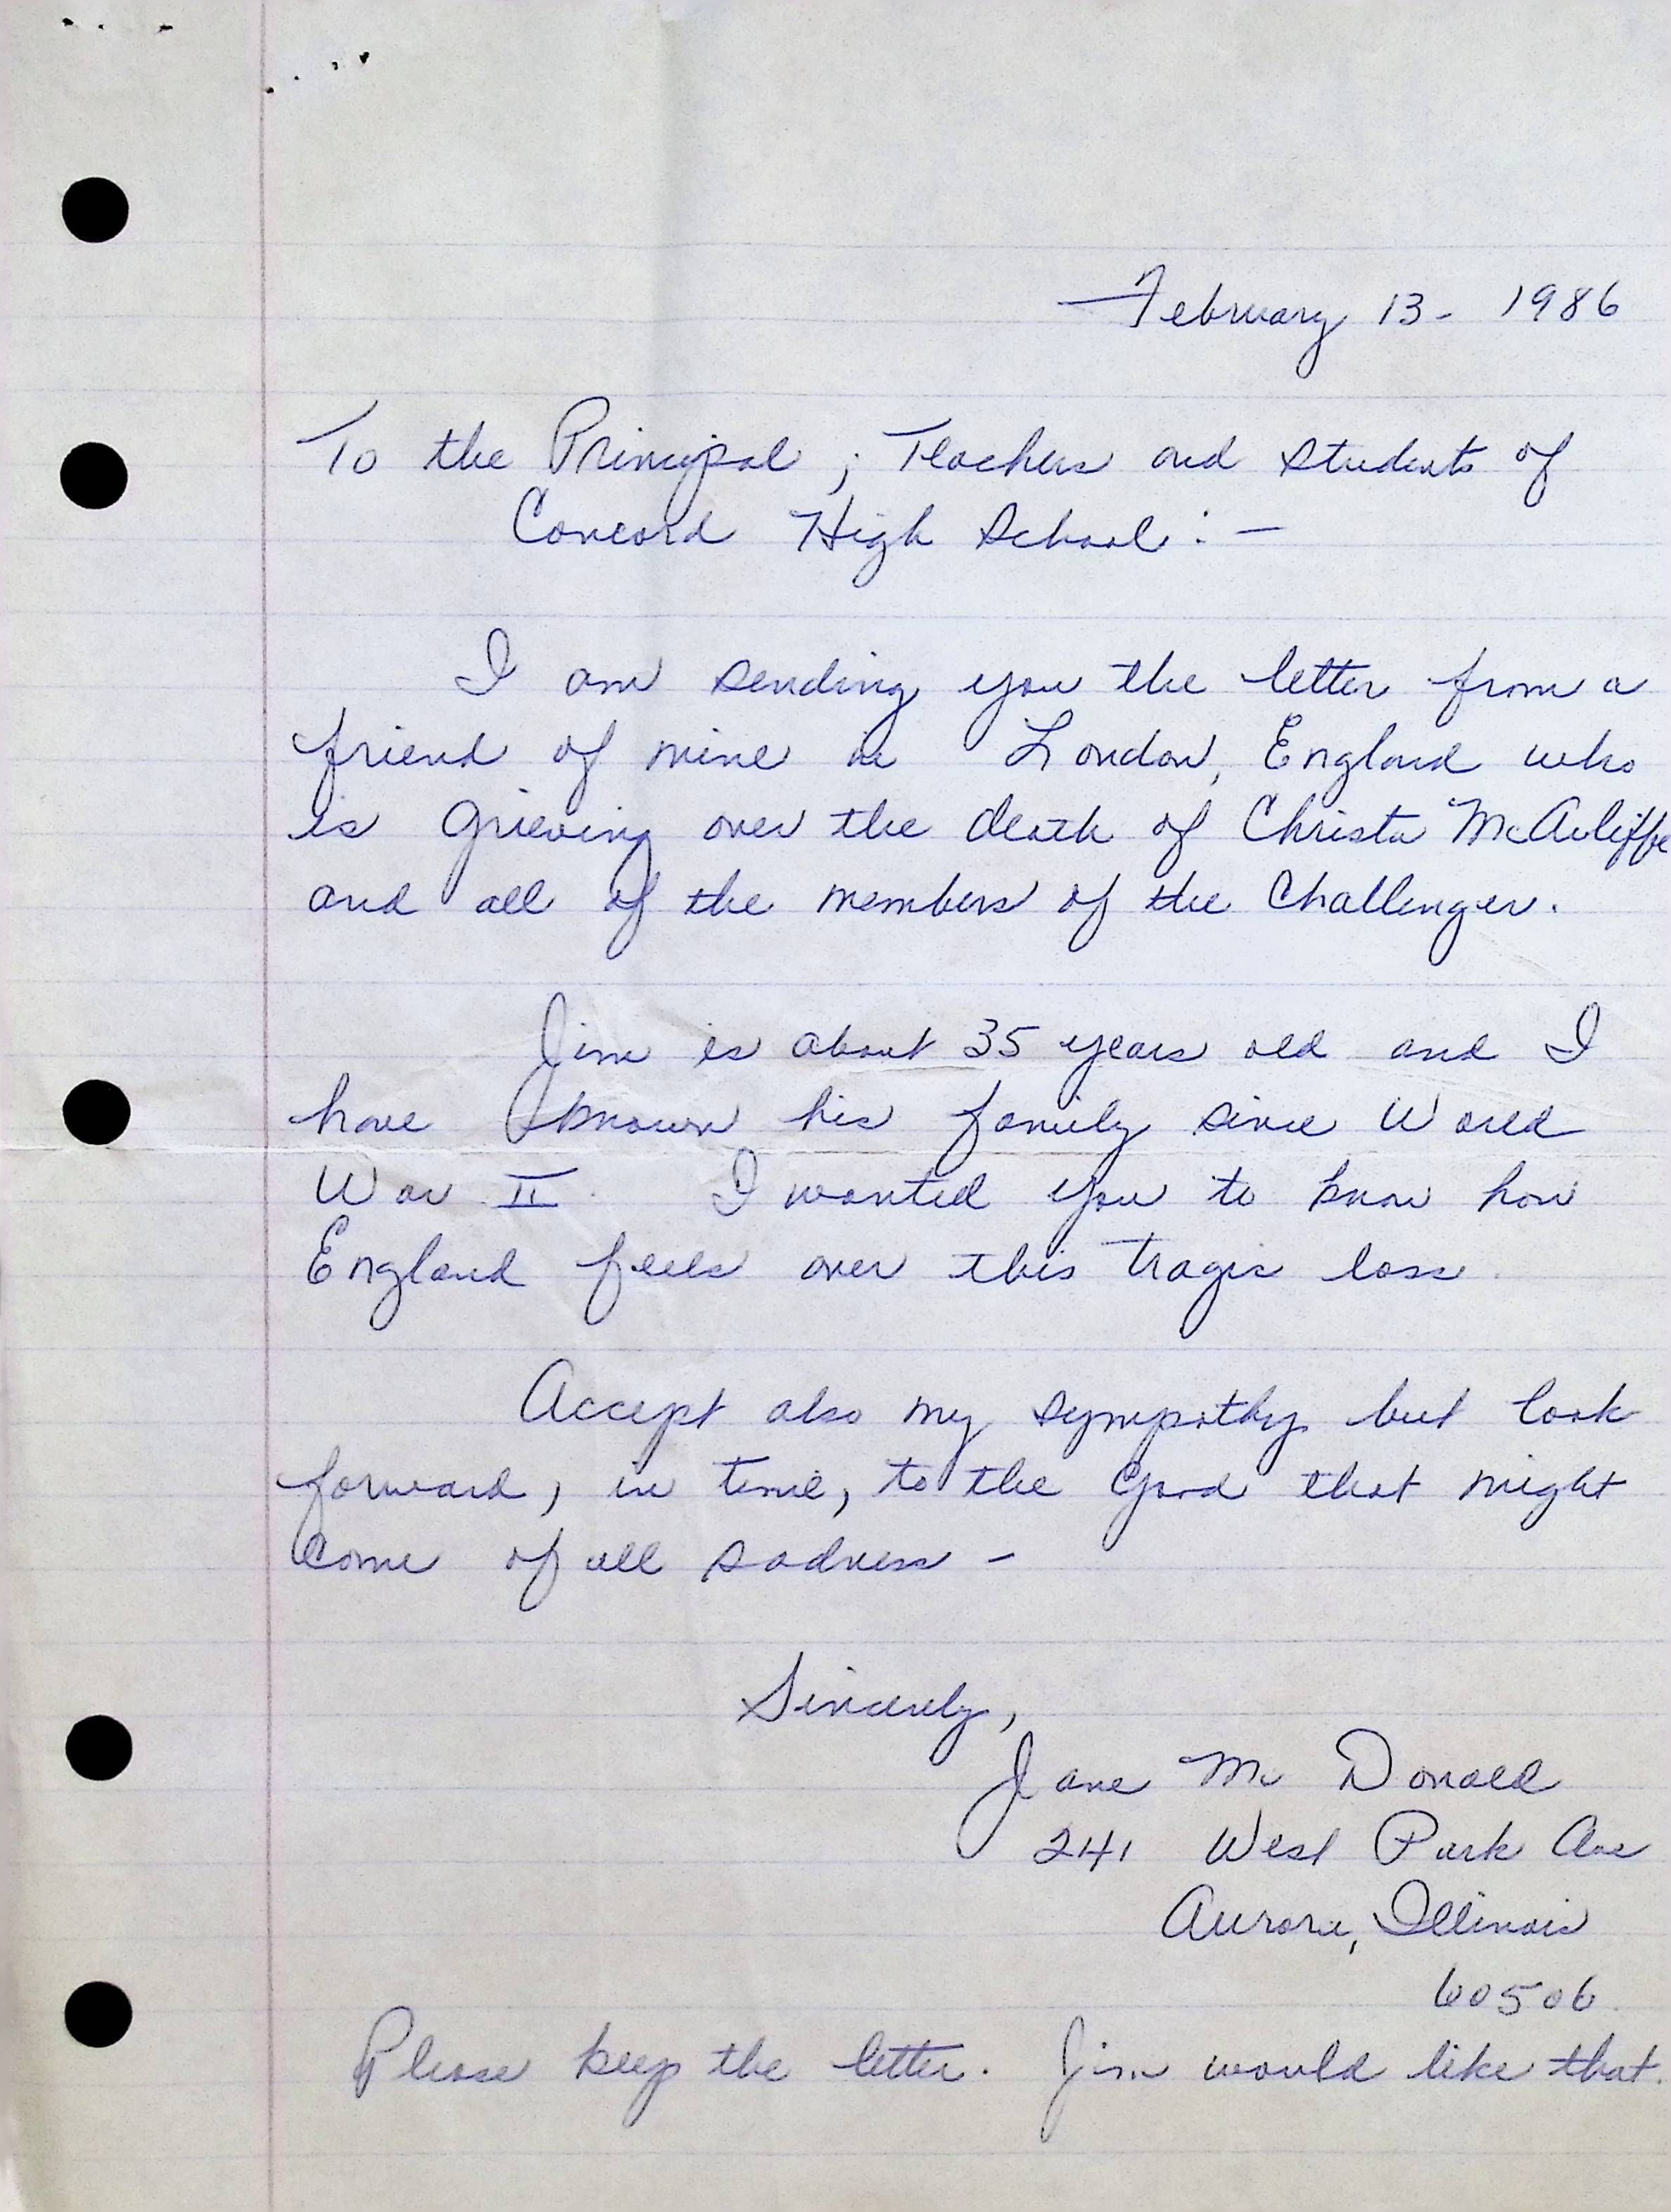 February 13 - 1986
To the Principal, Teachers and Students of
Concord High School: -
I am sending you the letter from a
friend of mine in London, England who
is grieving over the death of Christa McAuliffe
and all of the members of the Challenger.
Jim is about 35 years old and I
have known his family since World
War II. I wanted you to know how
England feels over this tragic loss.
Accept also my sympathy but look
forward, in time, to the good that might
come of all sadness -
Sincerely,
Jane Mc Donald
241 West Park Ave
Aurora, Illinois
60506
Please keep the letter. Jim would like that.